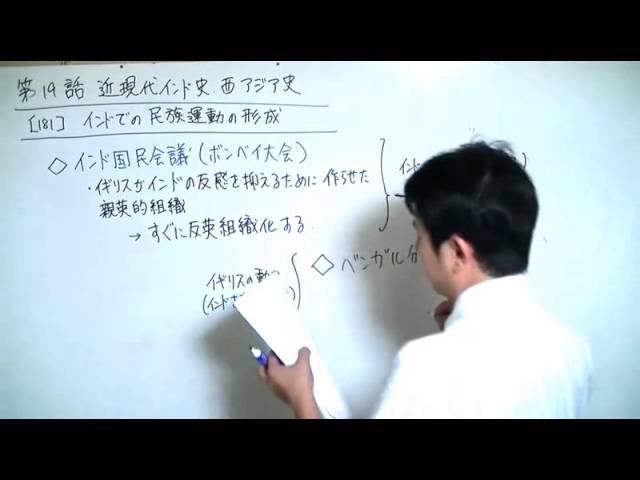 第19話 近現代インド史、西アジア史
[181] インドでの民族運動の形成
◇インド国民会議(ボンベイ大会)
・イギリスがインドの反感を抑えるために作らせた
親英的組織
→すぐに反英組織化する.
イギリスの動
(インド
◇ベンガル分